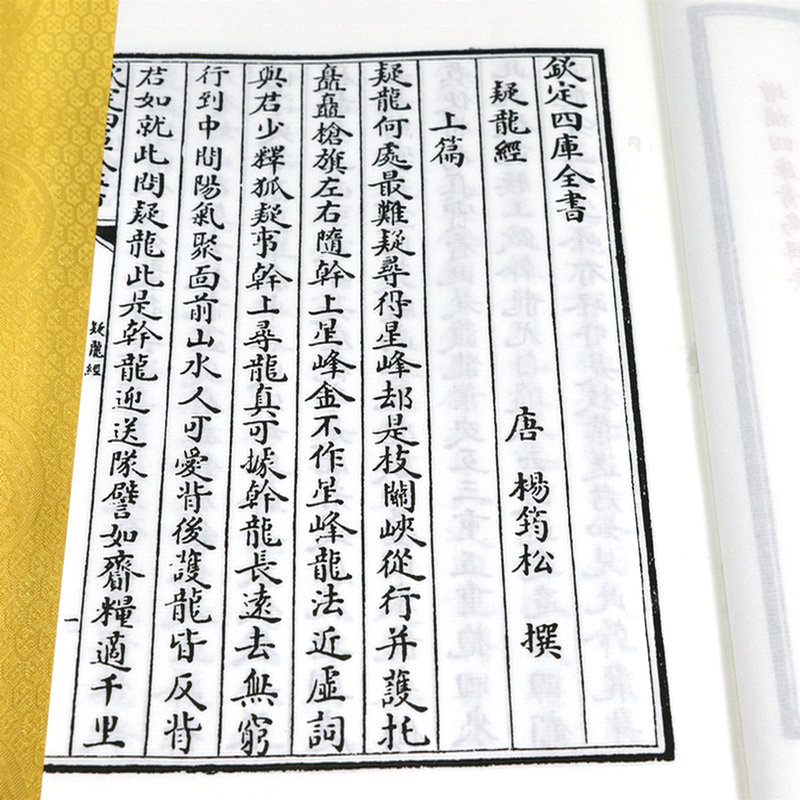 欽定四庫全書
疑龍經
唐 楊筠松 撰
上篇
疑龍何處最難疑尋得星峰却是枝關峽從行并護托
矗矗槍旗左右隨幹上星峰金不作星峰龍法近虛詞
與君少釋狐疑事幹上尋龍真可據幹龍長遠去無窮
行到中間陽氣聚面前山水人可愛背後護龍皆反背
君如就此問疑龍此是幹龍迎送隊譬如齎糧適千里
欽定四庫全書
疑龍經
一